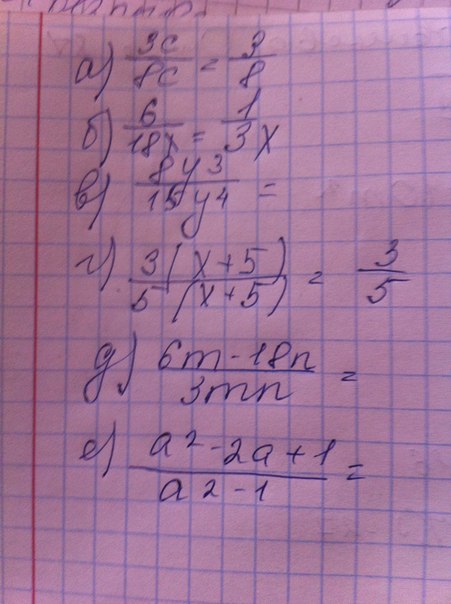 а) 3c/8c = 3/8
б) 6/18x = 1/3 x
в) 8y3/15y4 =
г) 3(x+5)/5(x+5) = 3/5
д) 6m-18n/3mn =
е) a2-2a+1/a2-1 =